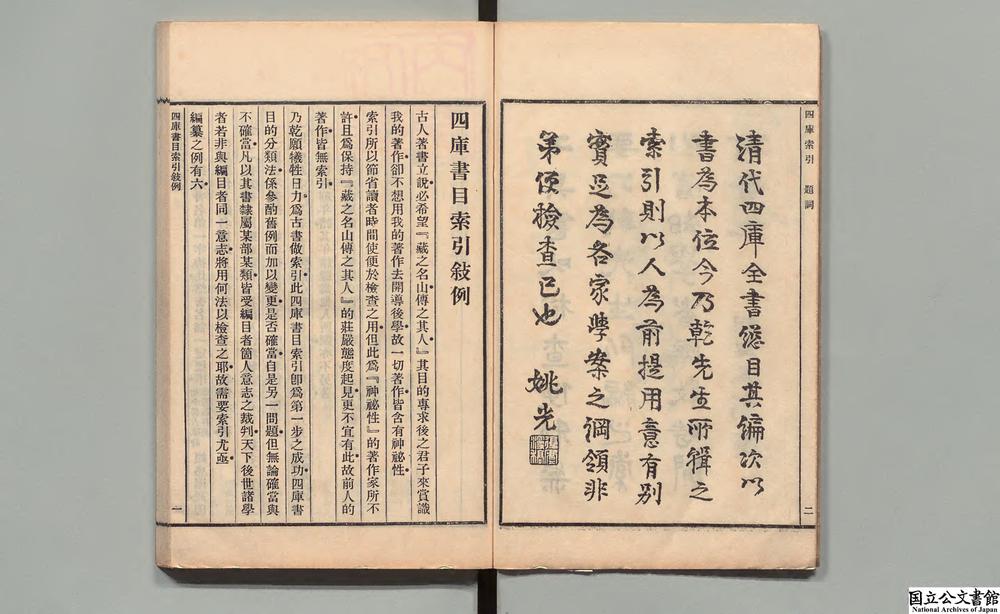 四庫索引 題詞
二
清代四庫全書總目其偏次以
書為本位今乃乾先生所輯之
索引則以人為前提用意有別
實足為各家學案之綱領非
第便檢查已也 姚光
四庫書目索引敍例
古人著書立說必希望『藏之名山傳之其人』其目的專求後之君子來賞識
我的著作卻不想用我的著作去開導後學故一切著作皆含有神祕性
索引所以節省讀者時間使便於檢查之用但此爲『神祕性』的著作家所不
許且爲保持『藏之名山傳之其人』的莊嚴態度起見更不宜有此故前人的
著作皆無索引
乃乾願犧牲日力爲古書做索引此四庫書目索引卽爲第一步之成功四庫書
目的分類法係參酌舊例而加以變更是否確當自是另一問題但無論確當與
不確當凡以其書隸屬某部某類皆受編目者箇人意志之裁判天下後世諸學
者若非與編目者同一意志將用何法以檢查之耶故需要索引尤亟
編纂之例有六
四庫書目索引敍例
一
国立公文書館
National Archives of Japan